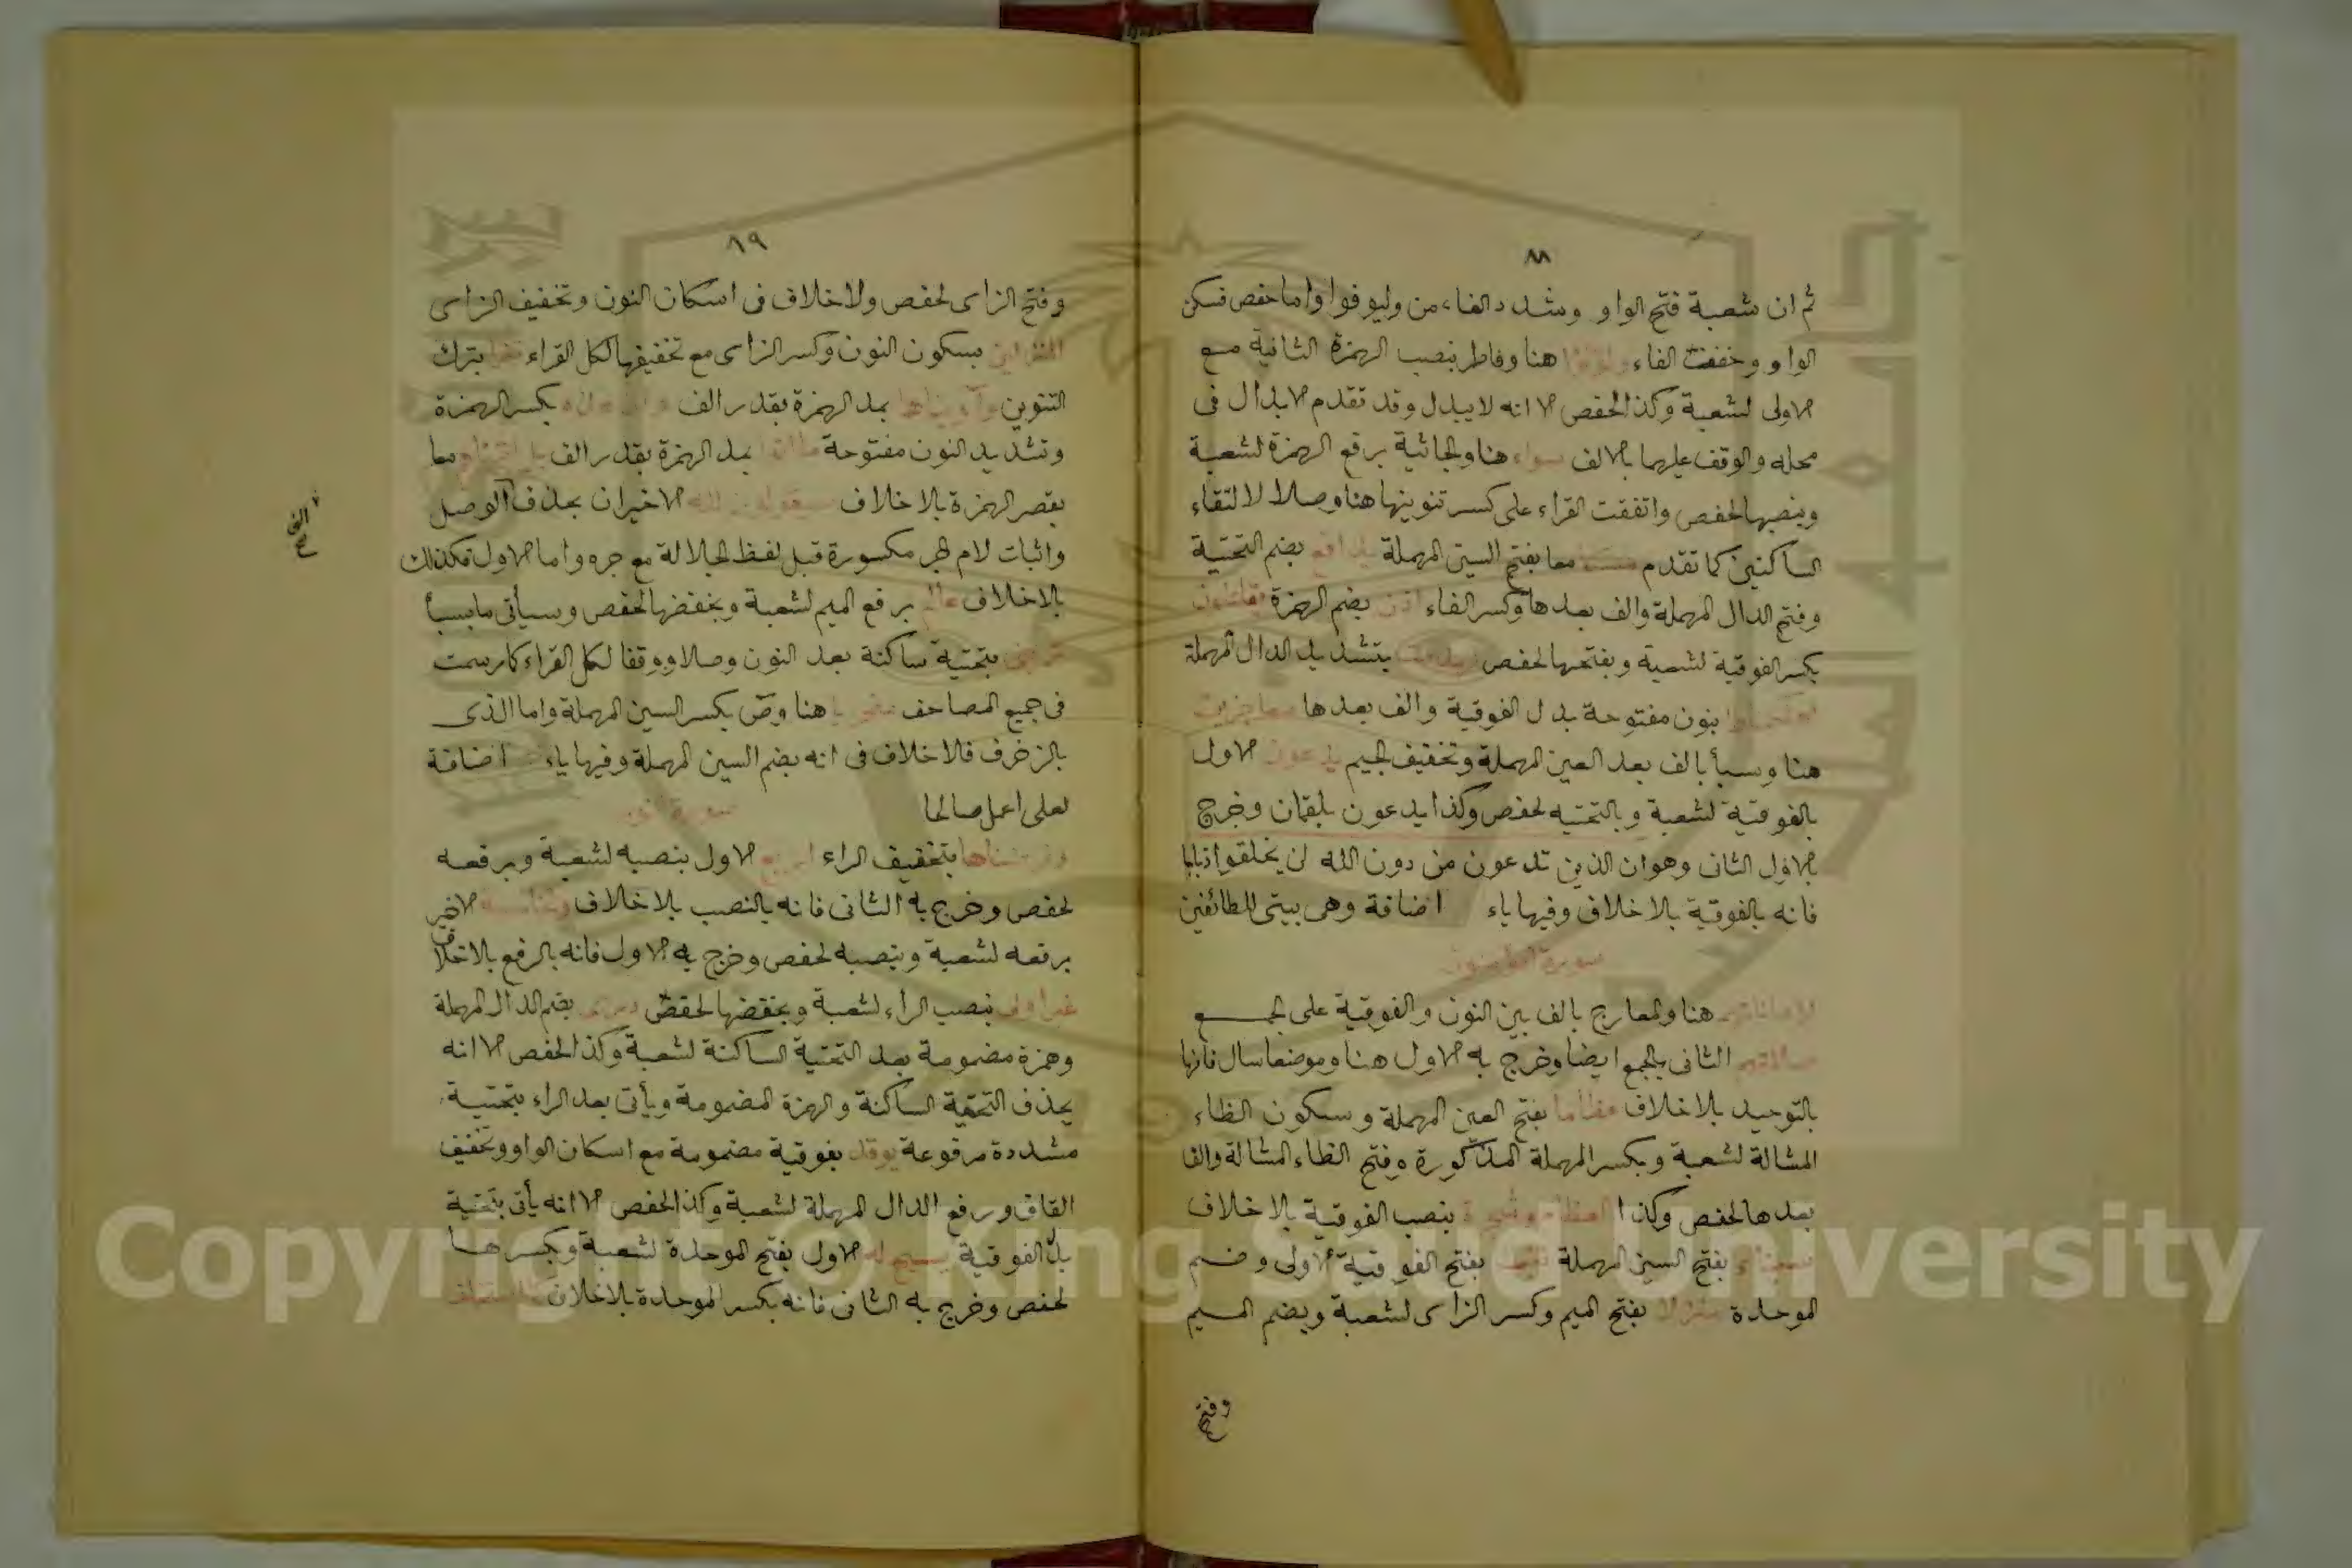 ٨٨
ثم ان شعبة فتح الواو وشدد الفاء من وليوفوا واما حفص فسكن
الواو وخففت الفاء ولؤلؤا هنا وفاطر بنصب الهمزة الثانية مع
الاولى لشعبة وكذا لحفص الا انه لا يبدل وقد تقدم الابدال فى
محله والوقف عليهما بالالف سواء هنا والجاثية برفع الهمزة لشعبة
وبنصبها لحفص واتفقت القراء على كسر تنوينها هنا وصلا لالتقاء
الساكنين كما تقدم منسكا معا بفتح السين المهملة يدافع بضم التحتية
وفتح الدال المهملة والف بعدها وكسر الفاء اذن بضم الهمزة يقاتلون
بكسر الفوقية لشعبة وبفتحها لحفص لهدمت بتشديد الدال المهملة
اهلكناها بنون مفتوحة بدل الفوقية والف بعدها معاجزين
هنا وسبأ بالف بعد العين المهملة وتخفيف الجيم يدعون الاول
بالفوقية لشعبة وبالتحتيه لحفص وكذا يدعون بلقمان وخرج
بالاول الثانى وهو ان الذين تدعون من دون الله لن يخلقوا ذبابا
فانه بالفوقية بلا خلاف وفيها ياء اضافة وهى بيتى للطائفين
سورة المؤمنون
لاماناتهم هنا والمعارج بالف بين النون والفوقية على الجمع
صلاتهم الثانى بالجمع ايضا وخرج به الاول هنا وموضعا سال فانها
بالتوحيد بلا خلاف عظاما بفتح العين المهملة وسكون الظاء
المشالة لشعبة وبكسر المهملة المذكورة وفتح الظاء المشالة والف
بعدها لحفص وكذا العظام وشجرة بنصب الفوقية بلا خلاف
سيناء بفتح السين المهملة تنبت بفتح الفوقية الاولى وضم
الموحدة منزلا بفتح الميم وكسر الزاى لشعبة وبضم الميم
وفتح
٨٩
وفتح الزاى لحفص ولا خلاف فى اسكان النون وتخفيف الزاى
المنزلين بسكون النون وكسر الزاى مع تخفيفها لكل القراء تترا بترك
التنوين وآويناهما بمد الهمزة بقدر الف وان هذه بكسر الهمزة
وتشديد النون مفتوحة بمد الهمزة بقدر الف بل اتيناهم معا
بقصر الهمزة بلا خلاف سيقولون لله الاخيران بحذف الوصل
الف
صح
واثبات لام الجر مكسورة قبل لفظ الجلالة مع جره واما الاول فكذلك
بلا خلاف عالم برفع الميم لشعبة وبخفضها لحفص وسيأتى ما بسبأ
بتحتية ساكنة بعد النون وصلا ووقفا لكل القراء كما رسمت
فى جميع المصاحف سخريا هنا وص بكسر السين المهملة واما الذى
بالزخرف فلا خلاف فى انه بضم السين المهملة وفيها ياء اضافة
لعلى اعمل صالحا
سورة النور
وفرضناها بتخفيف الراء اربع الاول بنصبه لشعبة وبرفعه
لحفص وخرج به الثانى فانه بالنصب بلا خلاف والخامسة الاخير
برفعه لشعبة وبنصبه لحفص وخرج به الاول فانه بالرفع بلا خلاف
غير اولى بنصب الراء لشعبة وبخفضها لحفص درى بضم الدال المهملة
وهمزة مضمومة بعد التحتية الساكنة لشعبة وكذا لحفص الا انه
يحذف التحتية الساكنة والهمزة المضمومة ويأتى بعد الراء بتحتية
مشددة مرفوعة يوقد بفوقية مضمومة مع اسكان الواو وتخفيف
القاف ورفع الدال المهملة لشعبة وكذا لحفص الا انه يأتى بتحتية
بدل الفوقية يسبح له الاول بفتح الموحدة لشعبة وبكسرها
لحفص وخرج به الثانى فانه بكسر الموحدة بلا خلاف كما استخلف
Copyright © King Saud University